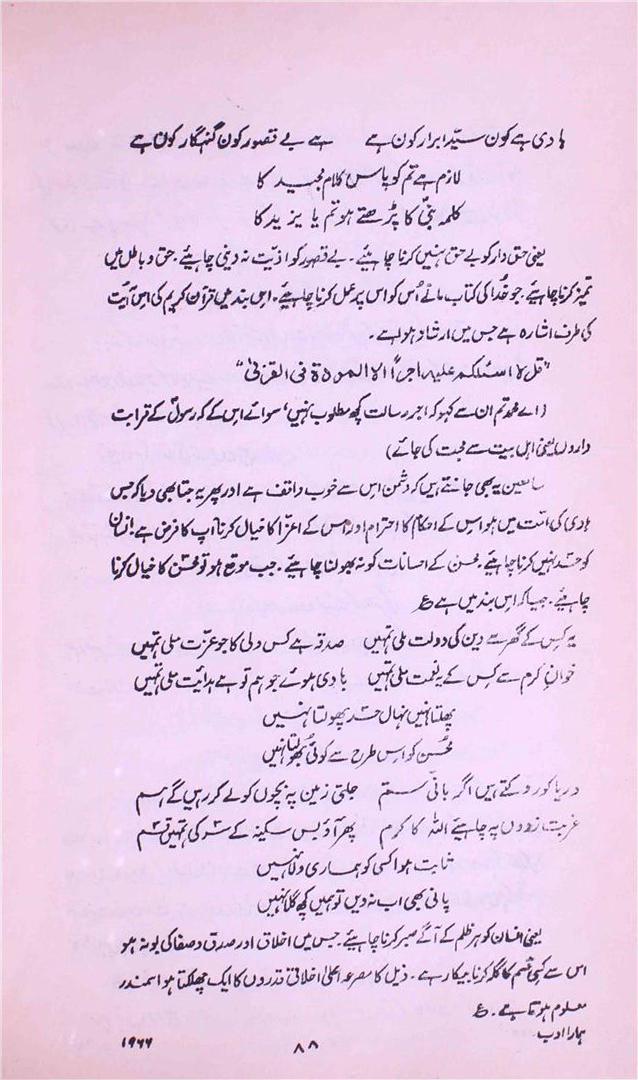 ہادی ہے کون سیّد ابرار کون ہے ہے بے قصور کون گنہگار کون ہے
لازم ہے تم کو پاس کلام مجید کا
کلمہ نبیؐ کا پڑھتے ہو تم یا یزید کا
یعنی حق دار کو بے حق نہیں کرنا چاہیئے۔ بے قصور کو اذیّت نہ دینی چاہیئے۔ حق و باطل میں
تمیز کرنا چاہیئے۔ جو خُدا کی کتاب مانے اُس کو اس پر عمل کرنا چاہیئے۔ اس بند میں قرآن کریم کی اس آیت
کی طرف اشارہ ہے جس میں ارشاد ہوا ہے۔
"قل لا اسئلکم علیہ اجراً الا المودۃ فی القربیٰ"
(اے محمدؐ تم ان سے کہو کہ اجر رسالت کچھ مطلوب نہیں' سوائے اس کے کہ رسولؐ کے قرابت
داروں یعنی اہل بیت سے محبت کی جائے)
سامعین یہ بھی جانتے ہیں کہ دشمن اس سے خوب واقف ہے اور پھر یہ جتا بھی دیا کہ جس
ہادی کی امّت میں ہو اس کے احکام کا احترام اور اس کے اعزا کا خیال کرنا آپ کا فرض ہے۔ انسان
کو حسد نہیں کرنا چاہیئے۔ محسن کے احسانات کو نہ بھولنا چاہیئے۔ جب موقع ہو تو محسن کا خیال کرنا
چاہیئے۔ جیسا کہ اس بند میں ہے ع
یہ کس کے گھر سے دین کی دولت ملی تمہیں صدقہ ہے کس ولی کا جو عزّت ملی تمہیں
خوانِ کرم سے کس کے یہ نعمت ملی تمہیں ہادی ہوئے جو ہم تو ہے ہدائیت ملی تمہیں
پھلتا نہیں نہال حسد پھولتا نہیں
محسن کو اس طرح سے کوئی بھُولتا نہیں
دریا کو روکتے ہیں اگر بانیٔ ستم جلتی زمین پہ بچوں کو لے کر رہیں گے ہم
غربت زدوں پہ چاہیئے اللہ کا کرم پھر آؤ بس سکینہ کے سر کی تمہیں قسم
ثابت ہوا کسی کو ہماری ولا نہیں
پانی بھی اب نہ دیں تو ہمیں کچھ گلا نہیں
یعنی انسان کو ہر ظلم کے آگے صبر کرنا چاہیئے۔ جس میں اخلاق اور صدق و صفا کی بو نہ ہو
اس سے کسی قسم کا گلہ کرنا بیکار ہے۔ ذیل کا مصرعہ اعلیٰ اخلاقی قدروں کا ایک چھلکتا ہوا سمندر
معلوم ہوتا ہے۔ ع
ہمارا ادب۔ ۸۸ ۱۹۶۶